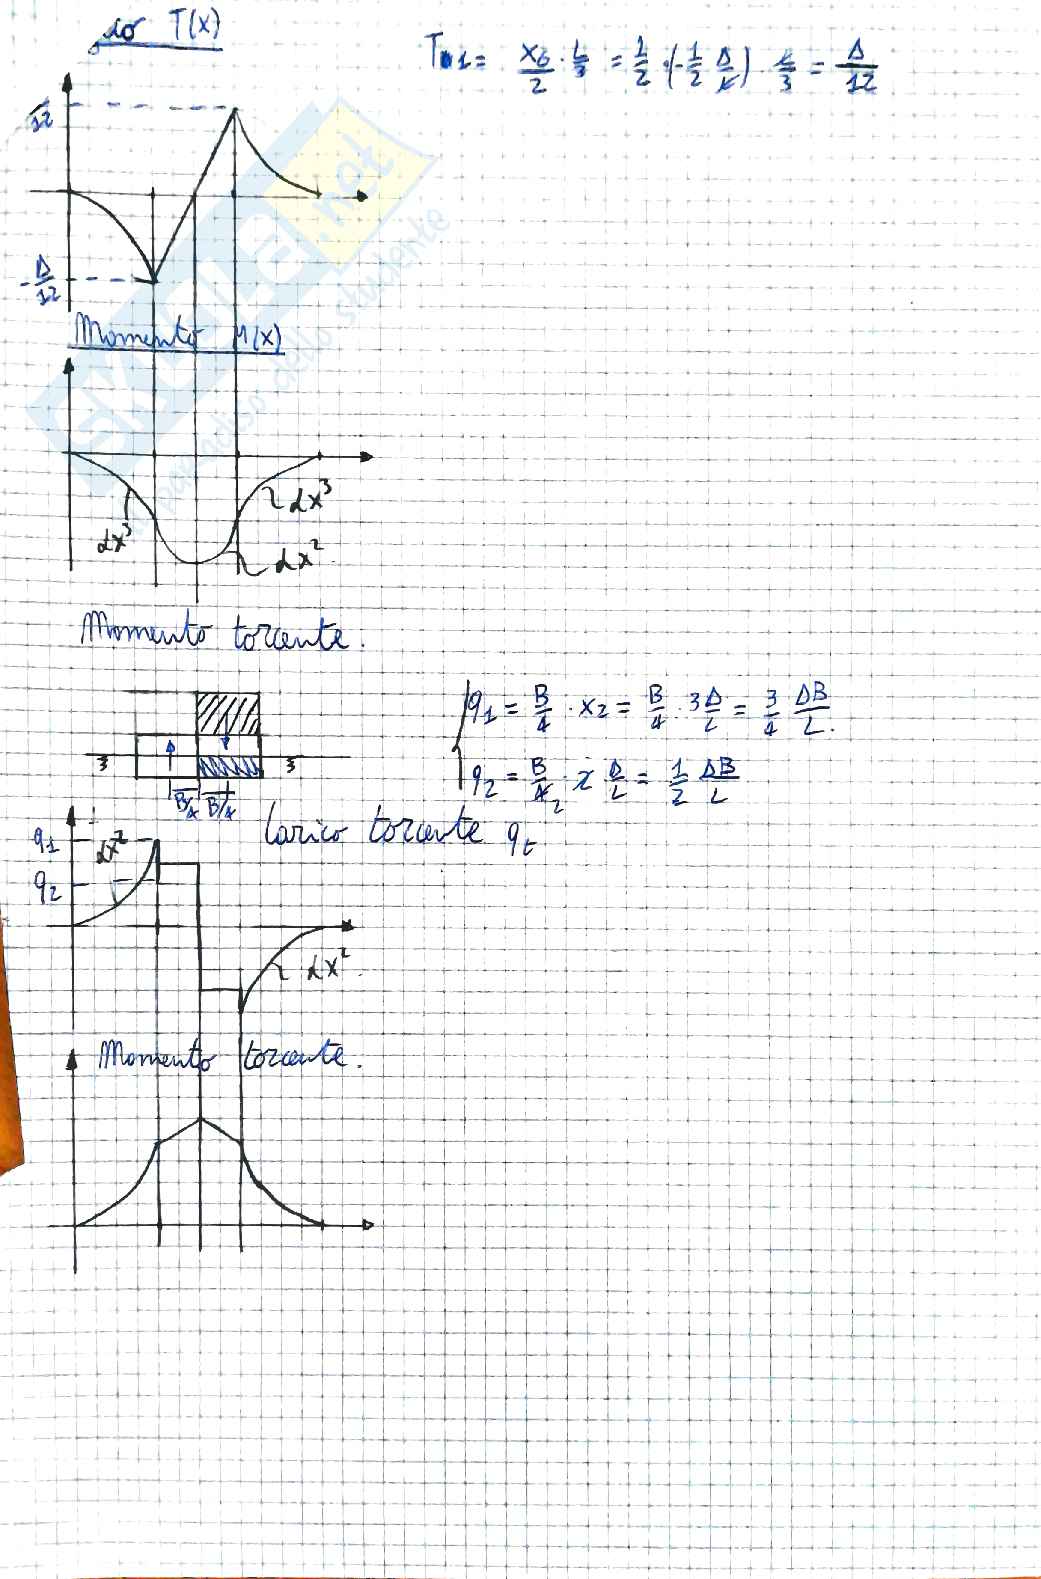 T(x)
T1 = x6/2 · L/3 = 1/2 · (-1/2 Δ/L) · L/3 = Δ/12
12
-Δ/12
Momento M(x)
αx³
αx³
αx²
Momento torcente.
q1 = B/4 · x2 = B/4 · 3Δ/L = 3/4 ΔB/L.
q2 = B/4 · 2 · Δ/L = 1/2 ΔB/L
B/4 B/4
Carico torcente qt
q1
αx²
q2
αx²
Momento torcente.